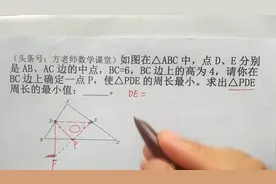 (头条号：方老师数学课堂) 如图在△ABC中，点D、E分别
是AB、AC边的中点，BC=6，BC边上的高为4，请你在
BC边上确定一点P，使△PDE的周长最小。求出△PDE
周长的最小值：____。 DE=
A
D
E
B
P
C
F